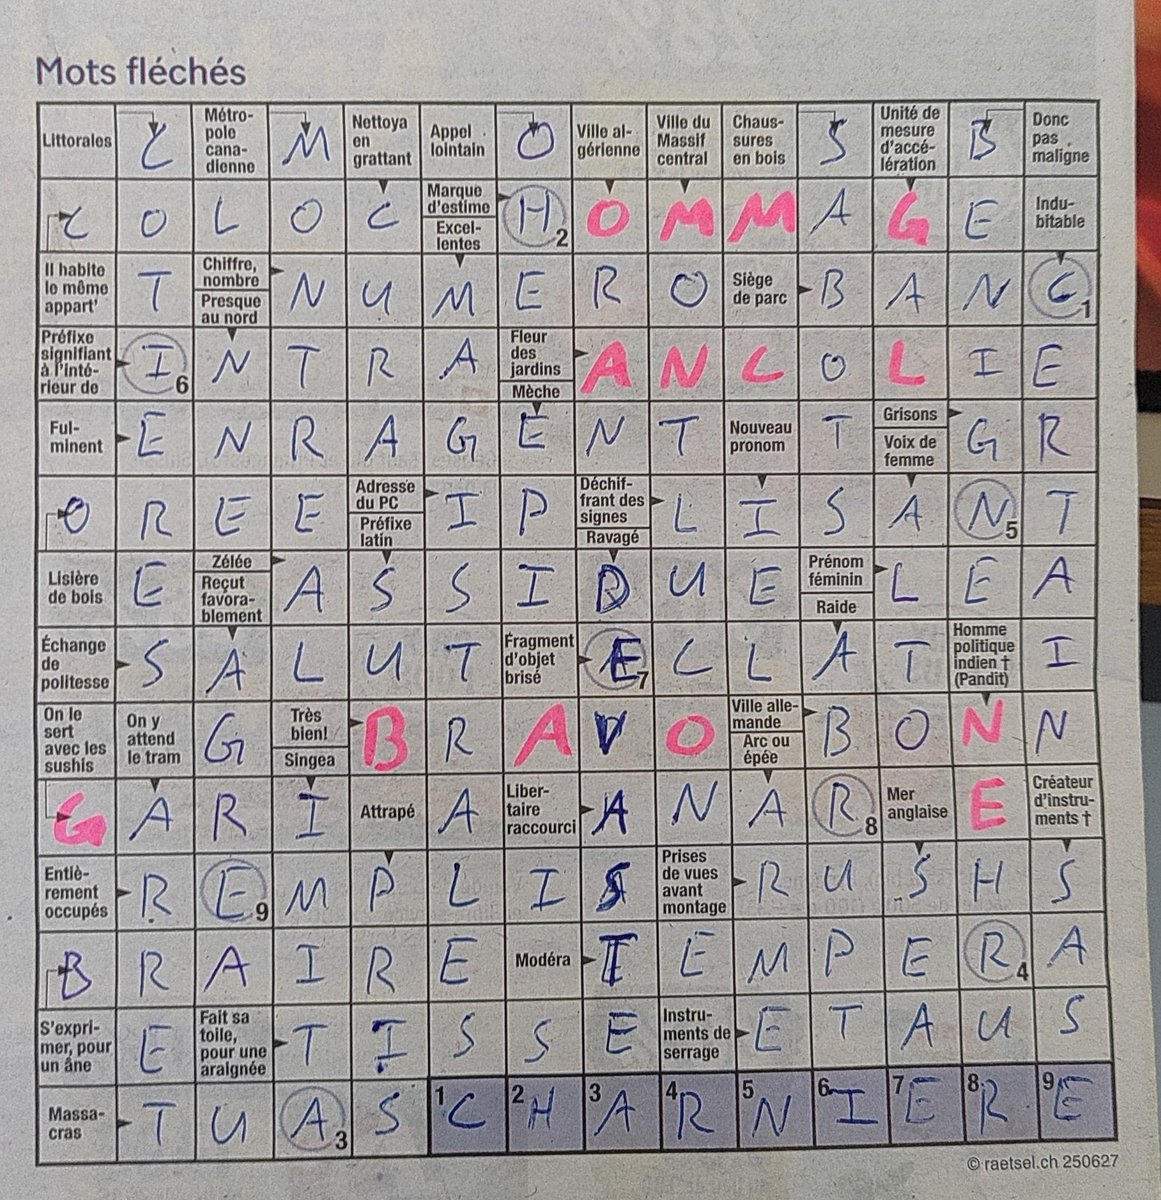 Mots fléchés
Littorales C Métro- pole cana- dienne M Nettoya en grattant Appel lointain O Ville al- gérienne Ville du Massif central Chaus- sures en bois S Unité de mesure d'accé- lération B Donc pas maligne
C O L O C Marque d'estime Excel- lentes H 2 O M M A G E Indu- bitable
Il habite le même appart' T Chiffre, nombre Presque au nord N U M E R O Siège de parc B A N C 1
Préfixe signifiant à l'inté- rieur de I 6 N T R A Fleur des jardins Mèche A N C O L I E
Ful- minent E N R A G E N T Nouveau pronom T Grisons Voix de femme G R
O R E E Adresse du PC Préfixe latin I P Déchif- frant des signes Ravagé L I S A N 5 T
Lisière de bois E Zélée Reçut favora- blement A S S I D U E Prénom féminin Raide L E A
Échange de politesse S A L U T Fragment d'objet brisé E 7 C L A T Homme politique indien † (Pandit) I
On le sert avec les sushis On y attend le tram G Très bien! Singea B R A V O Ville alle- mande Arc ou épée B O N N
G A R I Attrapé A Liber- taire raccourci A N A R 8 Mer anglaise E Créateur d'instru- ments †
Entiè- rement occupés R E 9 M P L I S Prises de vues avant montage R U S H S
B R A I R E Modéra T E M P E R 4 A
S'expri- mer, pour un âne E Fait sa toile, pour une araignée T I S S E Instru- ments de serrage E T A U S
Massa- cras T U A 3 S 1 C 2 H 3 A 4 R 5 N 6 I 7 E 8 R 9 E
© raetsel.ch 250627